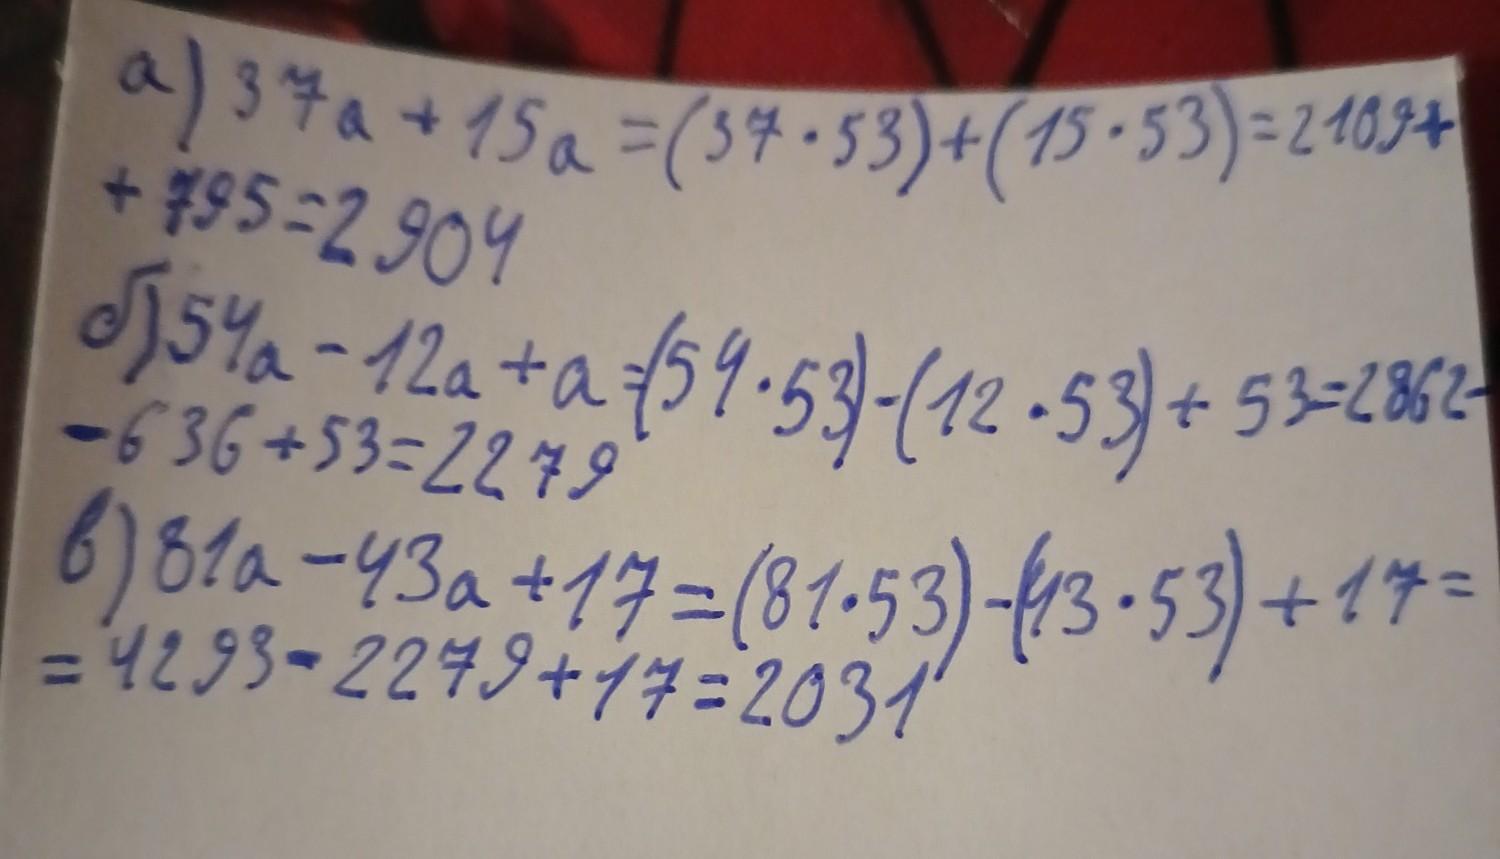 а) 37a + 15a = (37 · 53) + (15 · 53) = 2109 +
+ 795 = 2904
б) 54a - 12a + a = (54 · 53) - (12 · 53) + 53 = 2862 -
- 636 + 53 = 2279
в) 81a - 43a + 17 = (81 · 53) - (43 · 53) + 17 =
= 4293 - 2279 + 17 = 2031